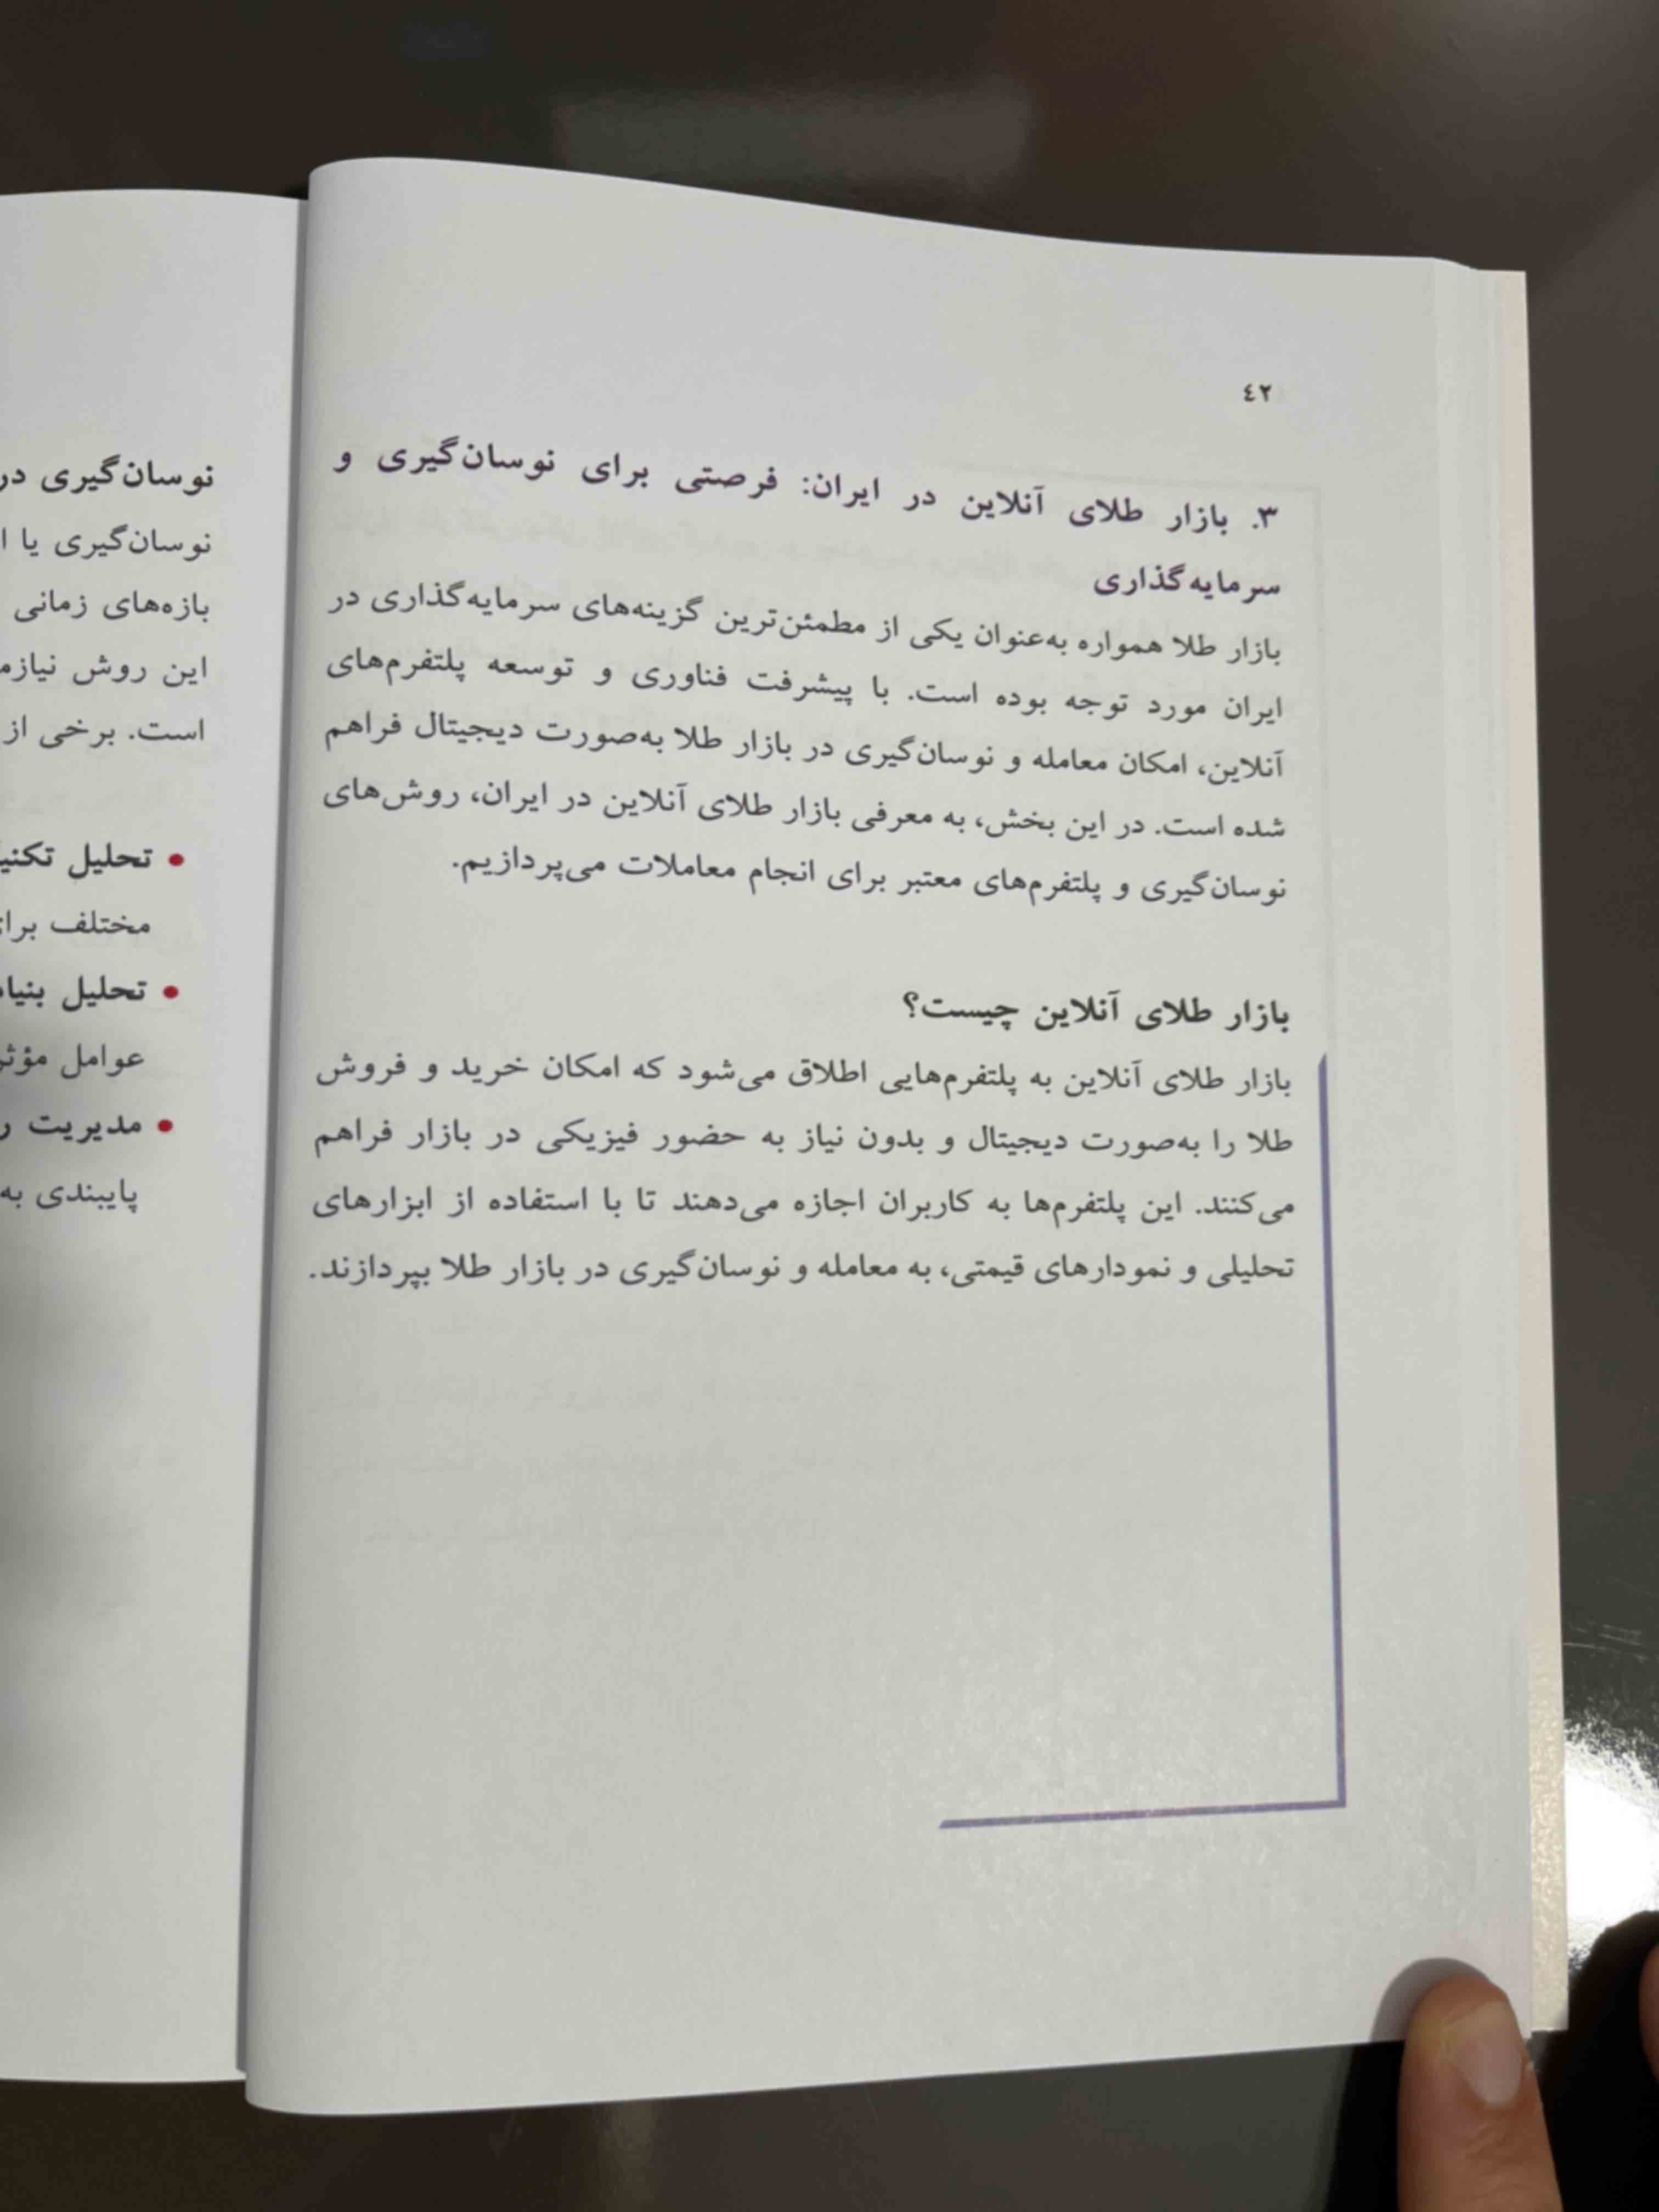 ٤٢
۳. بازار طلای آنلاین در ایران: فرصتی برای نوسان‌گیری و
سرمایه‌گذاری
بازار طلا همواره به‌عنوان یکی از مطمئن‌ترین گزینه‌های سرمایه‌گذاری در
ایران مورد توجه بوده است. با پیشرفت فناوری و توسعه پلتفرم‌های
آنلاین، امکان معامله و نوسان‌گیری در بازار طلا به‌صورت دیجیتال فراهم
شده است. در این بخش، به معرفی بازار طلای آنلاین در ایران، روش‌های
نوسان‌گیری و پلتفرم‌های معتبر برای انجام معاملات می‌پردازیم.
بازار طلای آنلاین چیست؟
بازار طلای آنلاین به پلتفرم‌هایی اطلاق می‌شود که امکان خرید و فروش
طلا را به‌صورت دیجیتال و بدون نیاز به حضور فیزیکی در بازار فراهم
می‌کنند. این پلتفرم‌ها به کاربران اجازه می‌دهند تا با استفاده از ابزارهای
تحلیلی و نمودارهای قیمتی، به معامله و نوسان‌گیری در بازار طلا بپردازند.
نوسان‌گیری در
نوسان‌گیری یا
بازه‌های زمانی
این روش
است. برخی از
• تحلیل
مختلف
• تحلیل
عوامل
• مدیریت
پایبندی به